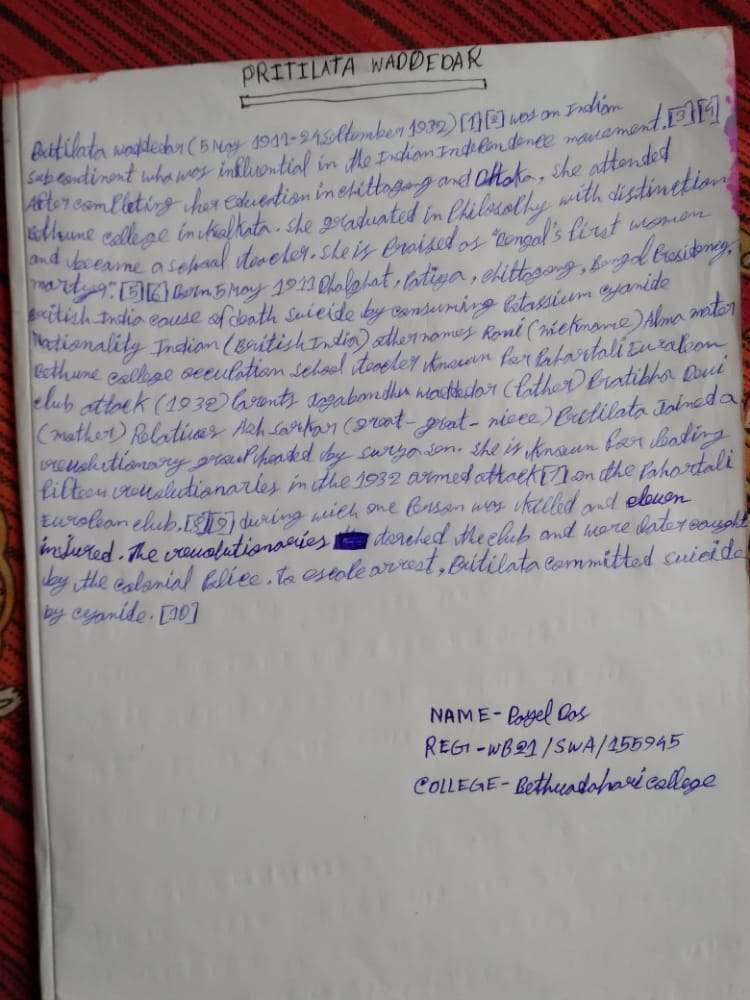 PRITILATA WADDEDAR
Pritilata waddedar (5 May 1911-24 September 1932) [1] [2] was an Indian
subcontinent who was influential in the Indian Independence movement. [3] [4]
After completing her education in chittagong and Dhaka, she attended
Bethune college in Kolkata. she graduated in Philosophy with distinction
and became a school teacher. she is Praised as "Bengal's first women
martyr". [5] [6] Born 5 May 1911 Dhalghat, Patiya, chittagong, Bengal Presidency,
British India cause of death suicide by consuming Potassium cyanide
Nationality Indian (British India) other names Rani (nickname) Alma mater
Bethune college occupation school teacher Known for Pahartali European
club attack (1932) Parents Jagabandhu waddedar (father) Pratibha Devi
(mother) Relatives Azh sarkar (great-great-niece) Pritilata Joined a
revolutionary group headed by surya sen. she is known for leading
fifteen revolutionaries in the 1932 armed attack [7] on the Pahartali
European club. [8] [9] during wich one Person was killed and eleven
injured. The revolutionaries torched the club and were later caught
by the colonial Police. To escape arrest, Pritilata committed suicide
by cyanide. [10]
NAME- Payel Das
REG -WB21/SWA/155945
COLLEGE- Bethuadahari college